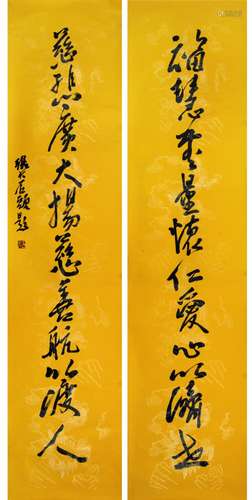 福慧無量懷仁愛心以濟世
慈悲廣大揚慈善航以渡人
張大石頭題